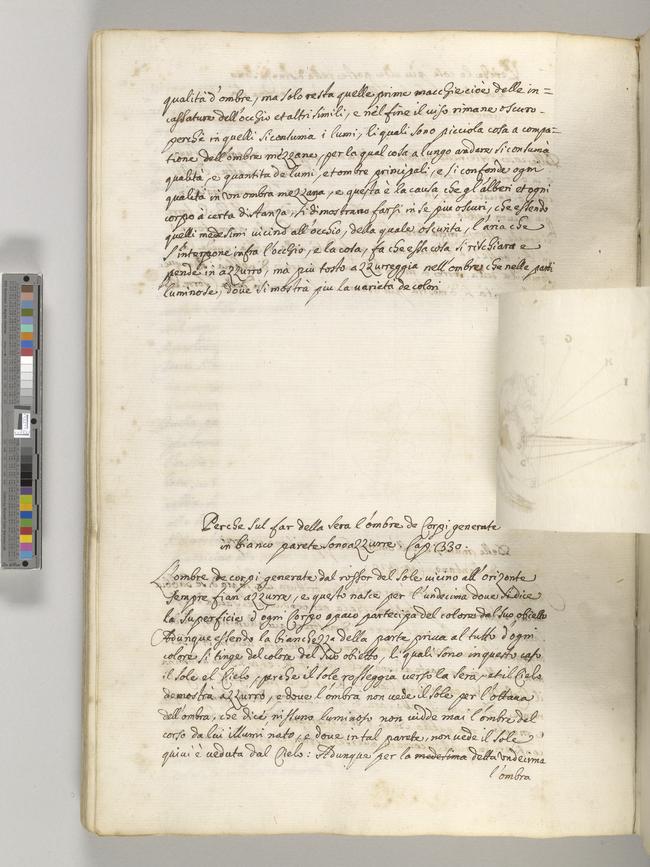 qualità d'ombre, ma solo resta quelle prime macchie cioè delle in=
cassature dell'occhio et altri simili, e nel fine il viso rimane oscuro
perchè in quelli si consuma i lumi, li quali sono piccola cosa a compa=
tione dell'ombre mezzane, per la qual cosa a lungo andare si consuma
qualità, e quantità de lumi, et ombre principali, e si confonde ogn
qualità in un ombra mezzana, e questa è la causa, che gl'alberi et ogni
corpo à certa distanza, si dimostrano farsi in se piu oscuri, che essendo
quelli medesimi vicino all'occhio, della quale oscurità, l'aria che
s'interpone infra l'occhio, e la cosa, fa che essa cosa si rischiara e
pende in azzurro, ma più tosto azzurreggia nell'ombre che nelle parti
luminose, dove si mostrà piu la varietà de colori
G
H
I
K
Perche sul far della sera l'ombre de Corpi generate
in bianco parete sono azzurre Cap. 330.
L'ombre de corpi generate dal rossor del sole vicino all'orizonte
sempre fian azzurre, e questo nasce per l'undecima dove si dice
la superficie d'ogni Corpo opaco partecipa del colore dal suo obietto
Adunque essendo la bianchezza della parta priua al tutto d'ogni
colore si tinge del colore del suo obietto, li quali sono in questo caso
il sole el Cielo, perche il sole rosseggia verso la sera, et il Cielo
demostrà azzurro, e dove l'ombra non vede il sole per l'ottava
dell'ombra, che dice nissuno luminoso non vidde mai l'ombre del
corpo da lui illuminato, e dove in tal parete, non vede il sole
quivi è veduta dal Cielo: Adunque per la medesima della Undecima
l'ombra